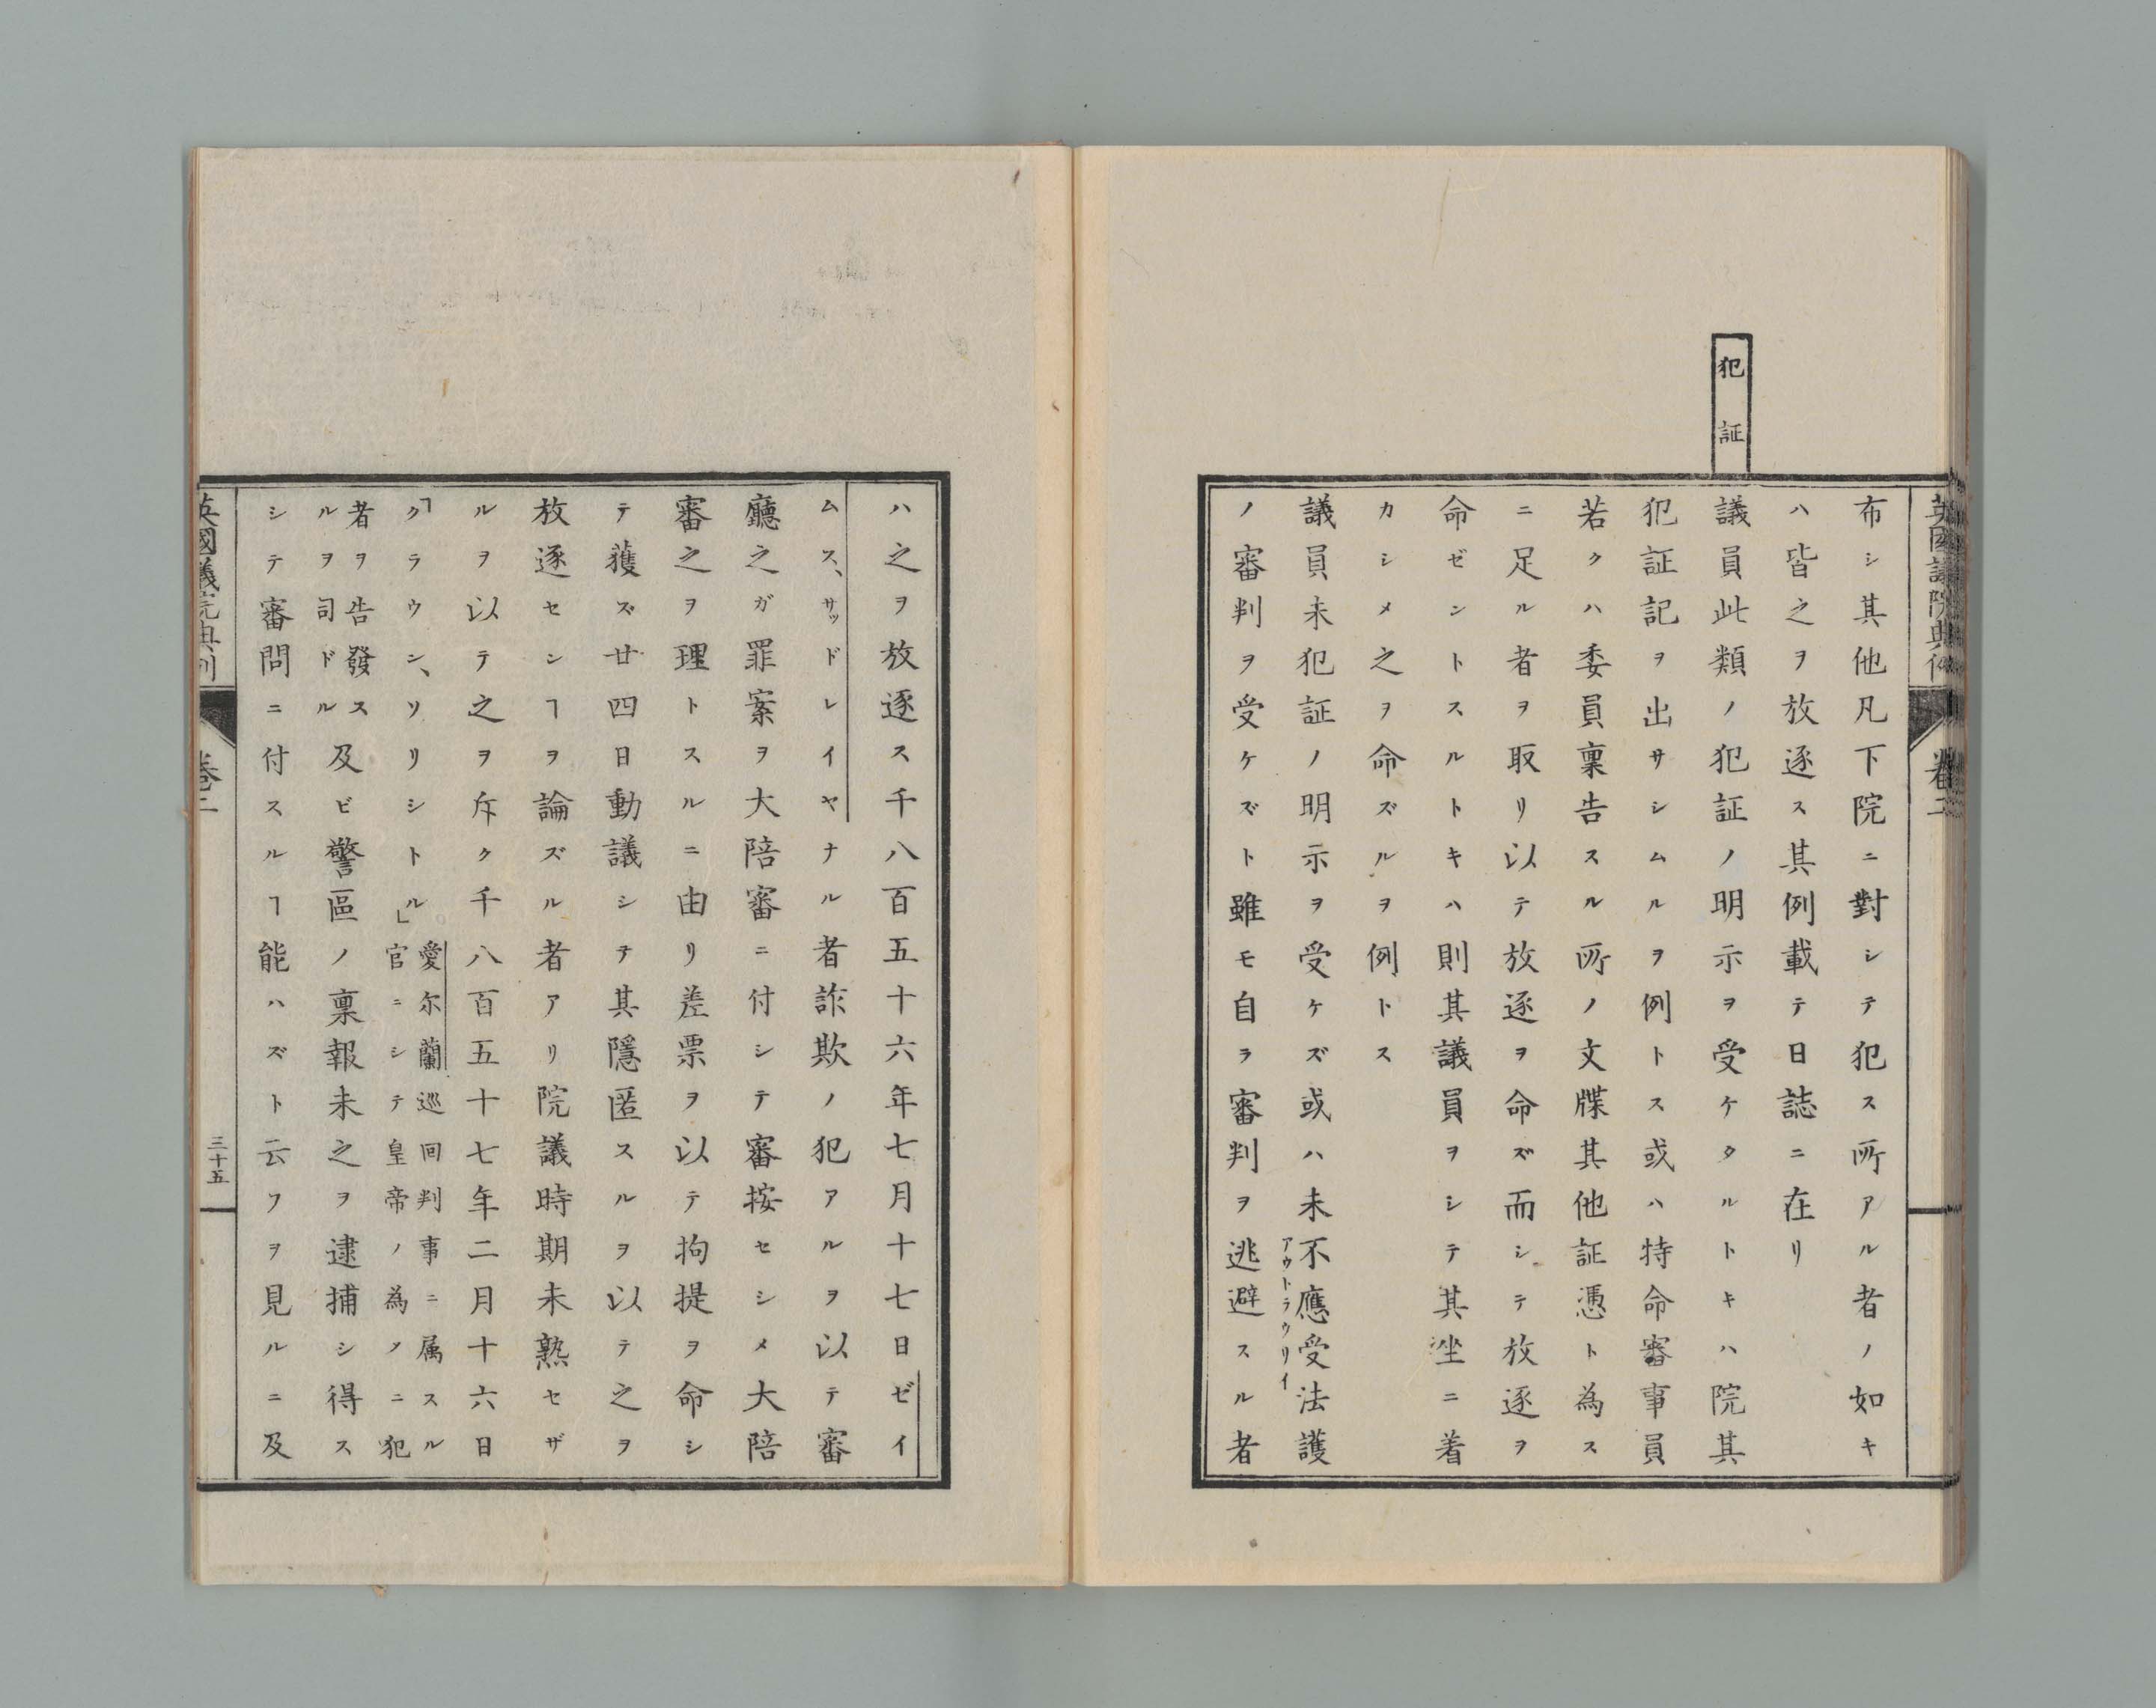 英國議院典例
卷二
犯証
布シ其他凡下院ニ對シテ犯ス所アル者ノ如キ
ハ皆之ヲ放逐ス其例載テ日誌ニ在リ
議員此類ノ犯証ノ明示ヲ受ケタルトキハ院其
犯証記ヲ出サシムルヲ例トス或ハ特命審事員
若クハ委員稟告スル所ノ文牒其他証憑ト為ス
ニ足ル者ヲ取リ以テ放逐ヲ命ズ而シテ放逐ヲ
命ゼントスルトキハ則其議員ヲシテ其坐ニ着
カシメ之ヲ命ズルヲ例トス
議員未犯証ノ明示ヲ受ケズ或ハ未不應受法護
アウトラウリイ
ノ審判ヲ受ケズト雖モ自ラ審判ヲ逃避スル者
ハ之ヲ放逐ス千八百五十六年七月十七日ゼイ
ムス、サッドレイヤナル者詐欺ノ犯アルヲ以テ審
廳之ガ罪案ヲ大陪審ニ付シテ審按セシメ大陪
審之ヲ理トスルニ由リ差票ヲ以テ拘提ヲ命シ
テ獲ズ廿四日動議シテ其隱匿スルヲ以テ之ヲ
放逐センヿヲ論ズル者アリ院議時期未熟セザ
ルヲ以テ之ヲ斥ク千八百五十七年二月十六日
「クラウン、ソリシトル」愛尓蘭巡回判事ニ属スル
官ニシテ皇帝ノ為メニ犯
者ヲ告發ス
ルヲ司ドル及ビ警區ノ稟報未之ヲ逮捕シ得ス
シテ審問ニ付スルヿ能ハズト云フヲ見ルニ及
英國議院典例
卷二
三十五